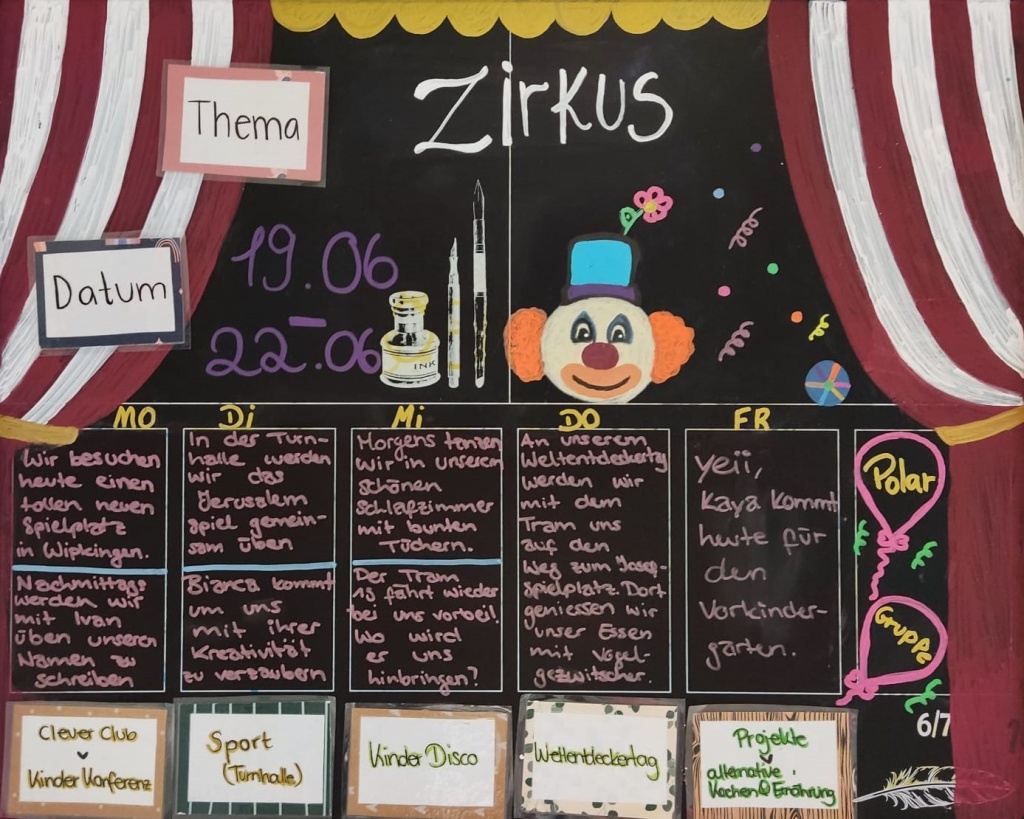 Thema
Zirkus
Datum
19.06
-
22.06
INK
MO
DI
Mi
DO
FR
Wir besuchen
heute einen
tollen neuen
Spielplatz
in Wipkingen.
Nachmittags
werden wir
mit Ivan
üben unseren
Namen zu
schreiben
In der Turn-
halle werden
wir das
Jerusalem
spiel gemein-
sam üben
Bianca kommt
um uns
mit ihrer
Kreativität
zu verzaubern
Morgens tanzen
wir in unserem
schönen
schlafzimmer
mit bunten
Tüchern.
Der Tram
15 fährt wieder
bei uns vorbei!
Wo wird
er uns
hinbringen?
An unserem
Weltentdeckertag
werden wir
mit dem
Tram uns
auf den
Weg zum Josef-
spielplatz. Dort
geniessen wir
unser Essen
mit Vogel-
gezwitscher.
yeii,
Kaya kommt
heute für
den
Vorkinder-
garten.
Polar
Gruppe
6/7
Clever Club
Kinder Konferenz
Sport
(Turnhalle)
Kinder Disco
Weltentdeckertag
Projekte
alternative
Kochen & Ernährung